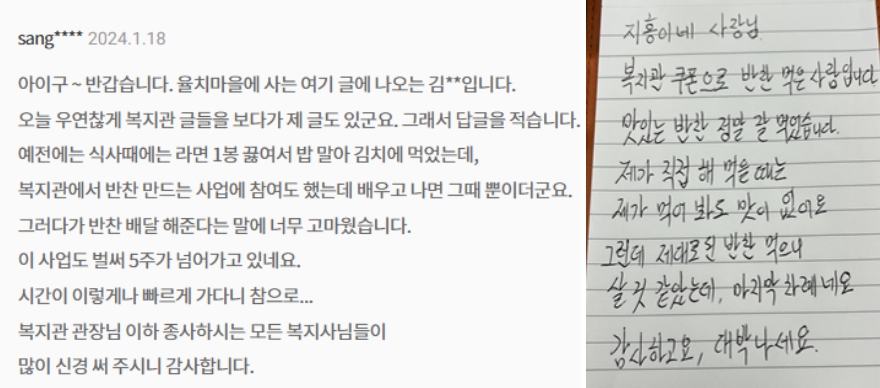 sang**** 2024.1.18
아이구 ~ 반갑습니다. 율치마을에 사는 여기 글에 나오는 김**입니다.
오늘 우연찮게 복지관 글들을 보다가 제 글도 있군요. 그래서 답글을 적습니다.
예전에는 식사때에는 라면 1봉 끓여서 밥 말아 김치에 먹었는데,
복지관에서 반찬 만드는 사업에 참여도 했는데 배우고 나면 그때 뿐이더군요.
그러다가 반찬 배달 해준다는 말에 너무 고마웠습니다.
이 사업도 벌써 5주가 넘어가고 있네요.
시간이 이렇게나 빠르게 가다니 참으로...
복지관 관장님 이하 종사하시는 모든 복지사님들이
많이 신경 써 주시니 감사합니다.
지홍이네 사랑님
복지관 쿠폰으로 반찬 먹은 사람입니다
맛있는 반찬 정말 잘 먹었습니다.
제가 직접 해 먹을 때는
제가 먹어 봐도 맛이 없어요
그런데 제대로 된 반찬 먹으니
살 것 같았는데, 마지막 차례네요
감사하고요, 대박나세요.